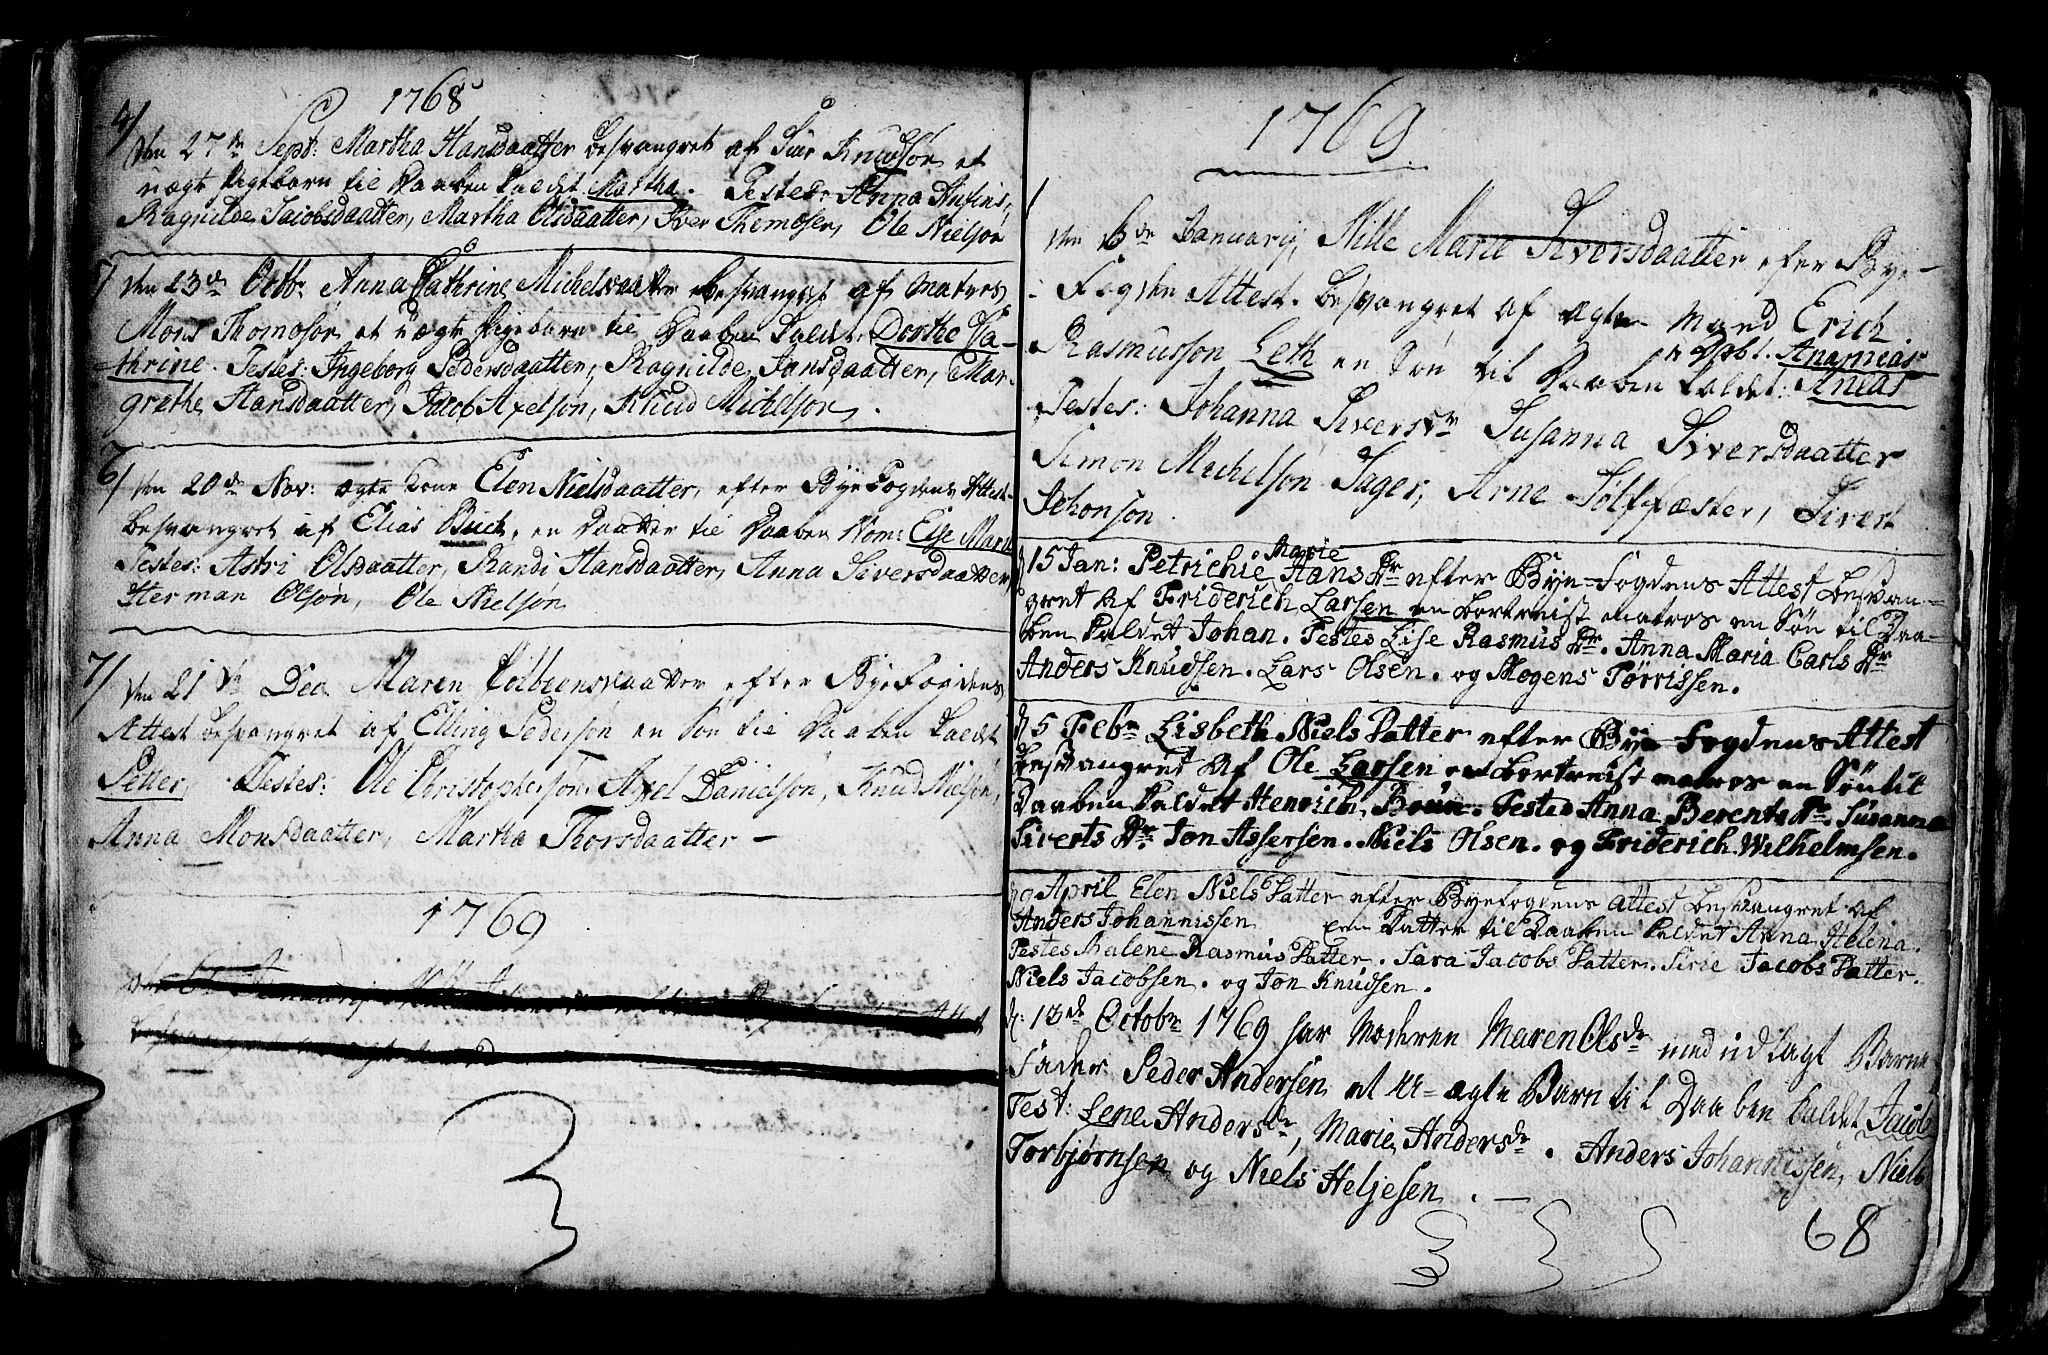 1768
4/
den 27de Sept: Martha Hansdaatter besvangret af Siur Knudsøn et
uægte Pigebarn til Daaben kaldet Martha. Testes: Anna Anfins,
Ragnilde Jacobsdaatter, Martha Olsdaatter, Iver Thomesen, Ole Nielsøn
den 23de Octbr Anna Cathrine Michelsdaatter besvangret af Matros
Mons Thomosøn et uægte Pigebarn til Daaben kaldet Dorthe Ca-
thrine. Testes: Ingeborg Pedersdaatter, Ragnilde Jansdaatter, Mar-
grethe Hansdaatter, Jacob Axelsøn, Knud Michelsøn.
6/ den 20de Nov: ægte Kone Elen Nielsdaatter, efter Bye Fogdens Attest
besvangret af Elias Buch, en Daatter til Daaben Nom: Else Marie
Testes: Astri Olsdaatter, Randi Hansdaatter, Anna Siversdaatter,
Herman Olsøn, Ole Nielsøn
7/ den 21de Dec Maren Colbensdaatter efter Bye Fogdens
Attest besvangret af Elling Pedersøn en Søn til Daaben kaldet
Petter, Testes: Ole Christophersøn, Axel Danielsøn, Knud Nielsøn,
Anna Monsdaatter, Martha Thorsdaatter —
1769
1769
1
den 6de Januarij, Nille Marie Siversdaatter efter Bye-
Fogdens Attest. besvangret af ægte Mand Erich
Rasmussøn Leth en Søn til Daaben kaldet: Ananias
Anias
Testes: Johanna Siversdr Susanna Siversdaatter
Simon Michelsøn Sager, Arne Sølffæster, Sivert
Schønsøn.
15 Jan: Petrichie Marie Hans Dr efter Bye-Fogdens Attest besvan-
gret af Friderich Larsen en bortreist Matros en Søn til Daa-
ben kaldet Johan. Testes Lise Rasmus Dr. Anna Maria Carls Dr
Anders Knudsen. Lars Olsen. og Mogens Tørrissen.
d 5 Febr Lisbeth Niels Datter efter Bye Fogdens Attest
besvangret af Ole Larsen en bortreist matros en Søn til
Daaben kaldet Henrich Brun. Testes Anna Berents Dr. Susanna
Siverts Dr Jon Assersen. Niels Olsen. og Friderich Wilhelmsen.
d 9 April Elen Niels Datter efter Byefogdens attest besvangret af
Anders Johannissen een Datter til Daaben kaldet Anna Helena.
Testes Malene Rasmus Datter. Sara Jacobs Datter. Sirie Jacobs Datter.
Niels Jacobsen. og Jon Knudsen.
d: 13de Octobr 1769 har Moderen Maren Olsdr med udlagt Barne
Fader Peder Andersen et U-ægte Barn til Daaben kaldet Jacob
Test: Lene Andersdr, Marie Andersdr. Anders Johannissen, Niels
Torbjørnsen og Niels Heljesen. —
68